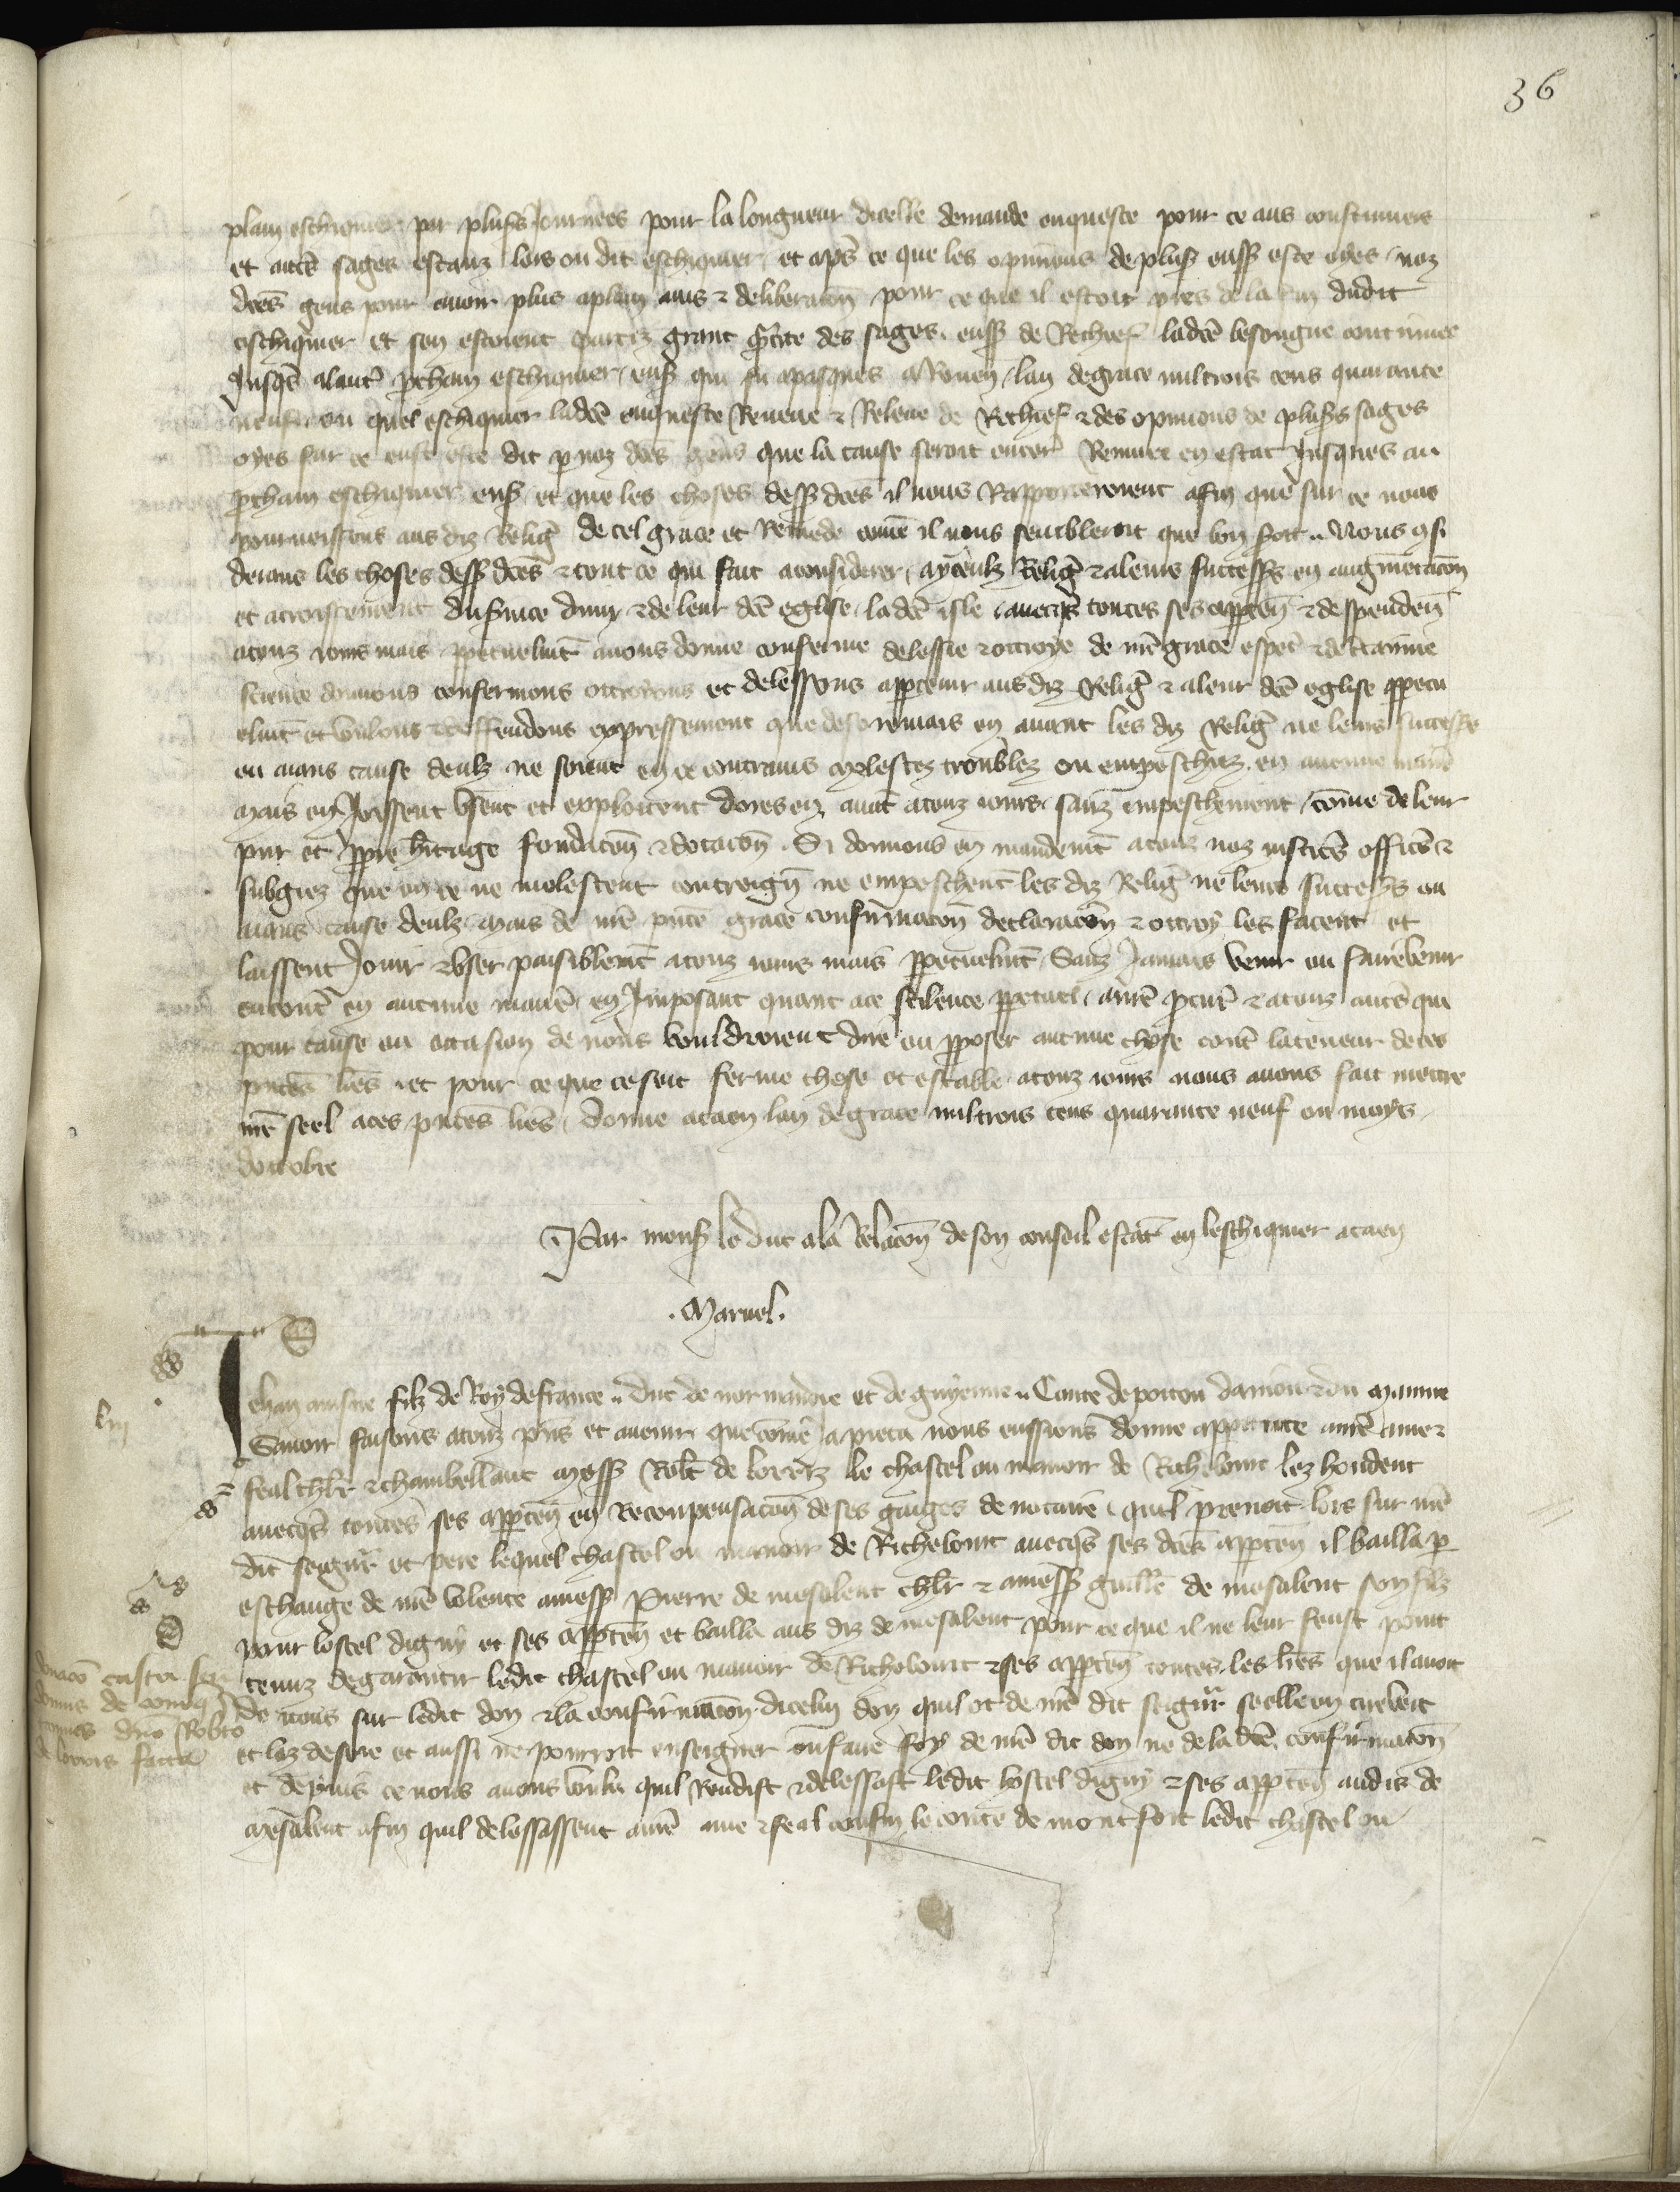 36
plain eschiquier par pluss Journees pour la longueur dicelle demande enqueste pour ce aus coustumiers
et autes sages estanz lors ou dit eschiquier et aps ce que les opinions de pluss eusst este oyes noz
dces gens pour avoir plus aplain avis & deliberacon pour ce que il estoit pres de la fin dudit
eschiquier et sen estoient partiz grant partie des sages eusst de Rechief ladce besongne continuee
Jusqs alautre pchain eschiquier ens qui fu apasques a Rouen lan de grace mil trois cens quarante
neuf ou quel eschiquier ladce enqueste Reveue & Releue de Rechief & des opinions de pluss sages
oyes sur ce eust este dit p noz dces gens que la cause seroit encore Remise en estat Jusques au
pchain eschiquier ens et que les choses dess dces il nous Rapporteroient afin que sur ce nous
pourveissons aus diz Relig de tel grace et Remede come il nous sembleroit que bon fust Nous csi
derans les choses dess dces & tout ce qui fait aconsiderer ayceulz Relig & aleurs success en augmetacon
et acroissement du service divin & de leur dce eglise ladce isle avecqs toutes ses appten & desppenden
atouz jours mais ppetuelmt avons donne conferme delessie & ottroye de nre grace espec & de ctaine
science donnons confermons ottroyons et delessons apptenir aus diz Relig & aleur dce eglise ppetu
elmt et voulons & deffendons expressement que desoremais en avant les diz Relig ne leurs success
ou aians cause deulz ne soient en ce contraus molestez troublez ou empeschiez en aucune maniere
mais en Joyssent usent et exploitent dores en avat atouz jours sanz empeschement come de leur
pur et ppre heritage fondacon & dotacon Si donnons en mandemt atouz noz justices offices &
subgiez que en ce ne molestent contreign ne empeschent les diz Relig ne leurs success ou
aians cause deulz mais de nre pnte grace confirmacon declaracon & ottroy les facent et
laissent Jouir & user paisiblemt atouz jours mais ppetuelmt Sanz Jamais venir ou faire venir
encontre en aucune maniere en Imposant quant ace scilence ppetuel a nre pcur & atouz autes que
pour cause ou occasion de nous vouldroient dire ou pposer aucune chose contre lateneur de ces
pntes lres et pour ce que ce soit ferme chose et estable atouz jours nous avons fait mettre
nre seel aces pntes lres Donne acaen lan de grace mil trois cens quarante neuf ou moys
doctobre
Par mons le duc ala Relacon de son conseil estat en leschiquier acaen
Maruel
Jehan ainsne filz de Roy de france duc de normandie et de guyenne Conte de poitou danjou & du maine
Savoir faisons atouz pns et avenir que come apieca nous eussions donne appetuite a nre ame &
feal chlr & chambellanc mess Robt de lorriz le chastel ou manoir de Richebourt lez houdent
avecqs toutes ses apptens en Recompensacon de ses gaiges de notaire quil prenoit lors sur nre
dit seigneur et pere lequel chastel ou manoir de Richebourt avecqs ses dces appten il bailla p
eschange de nre volente amess Pierre de mesalent chlr & amess guille de mesalent son filz
pour lostel digny et ses appten et bailla aus diz de mesalent pour ce que il ne leur feust point
tenuz de garantir ledit chastel ou manoir de Richebourt & ses appten toutes les lres que il avoit
de nous sur ledit don & la confirmacon dicelui don quil ot de nre dit seigneur seellees en cire vert
et laz de soie et aussi ne pourroit enseigner ou faire foy de nre dit don ne de ladce confirmacon
et depuis ce nous avons voulu quil Rendist & delessast ledit hostel digny & ses appten audis de
mesalent afin quil delessassent a nre ame & feal cousin le conte de montfort ledit chastel ou
donaco castri seu
domus de
dno Robto
de lorris facta